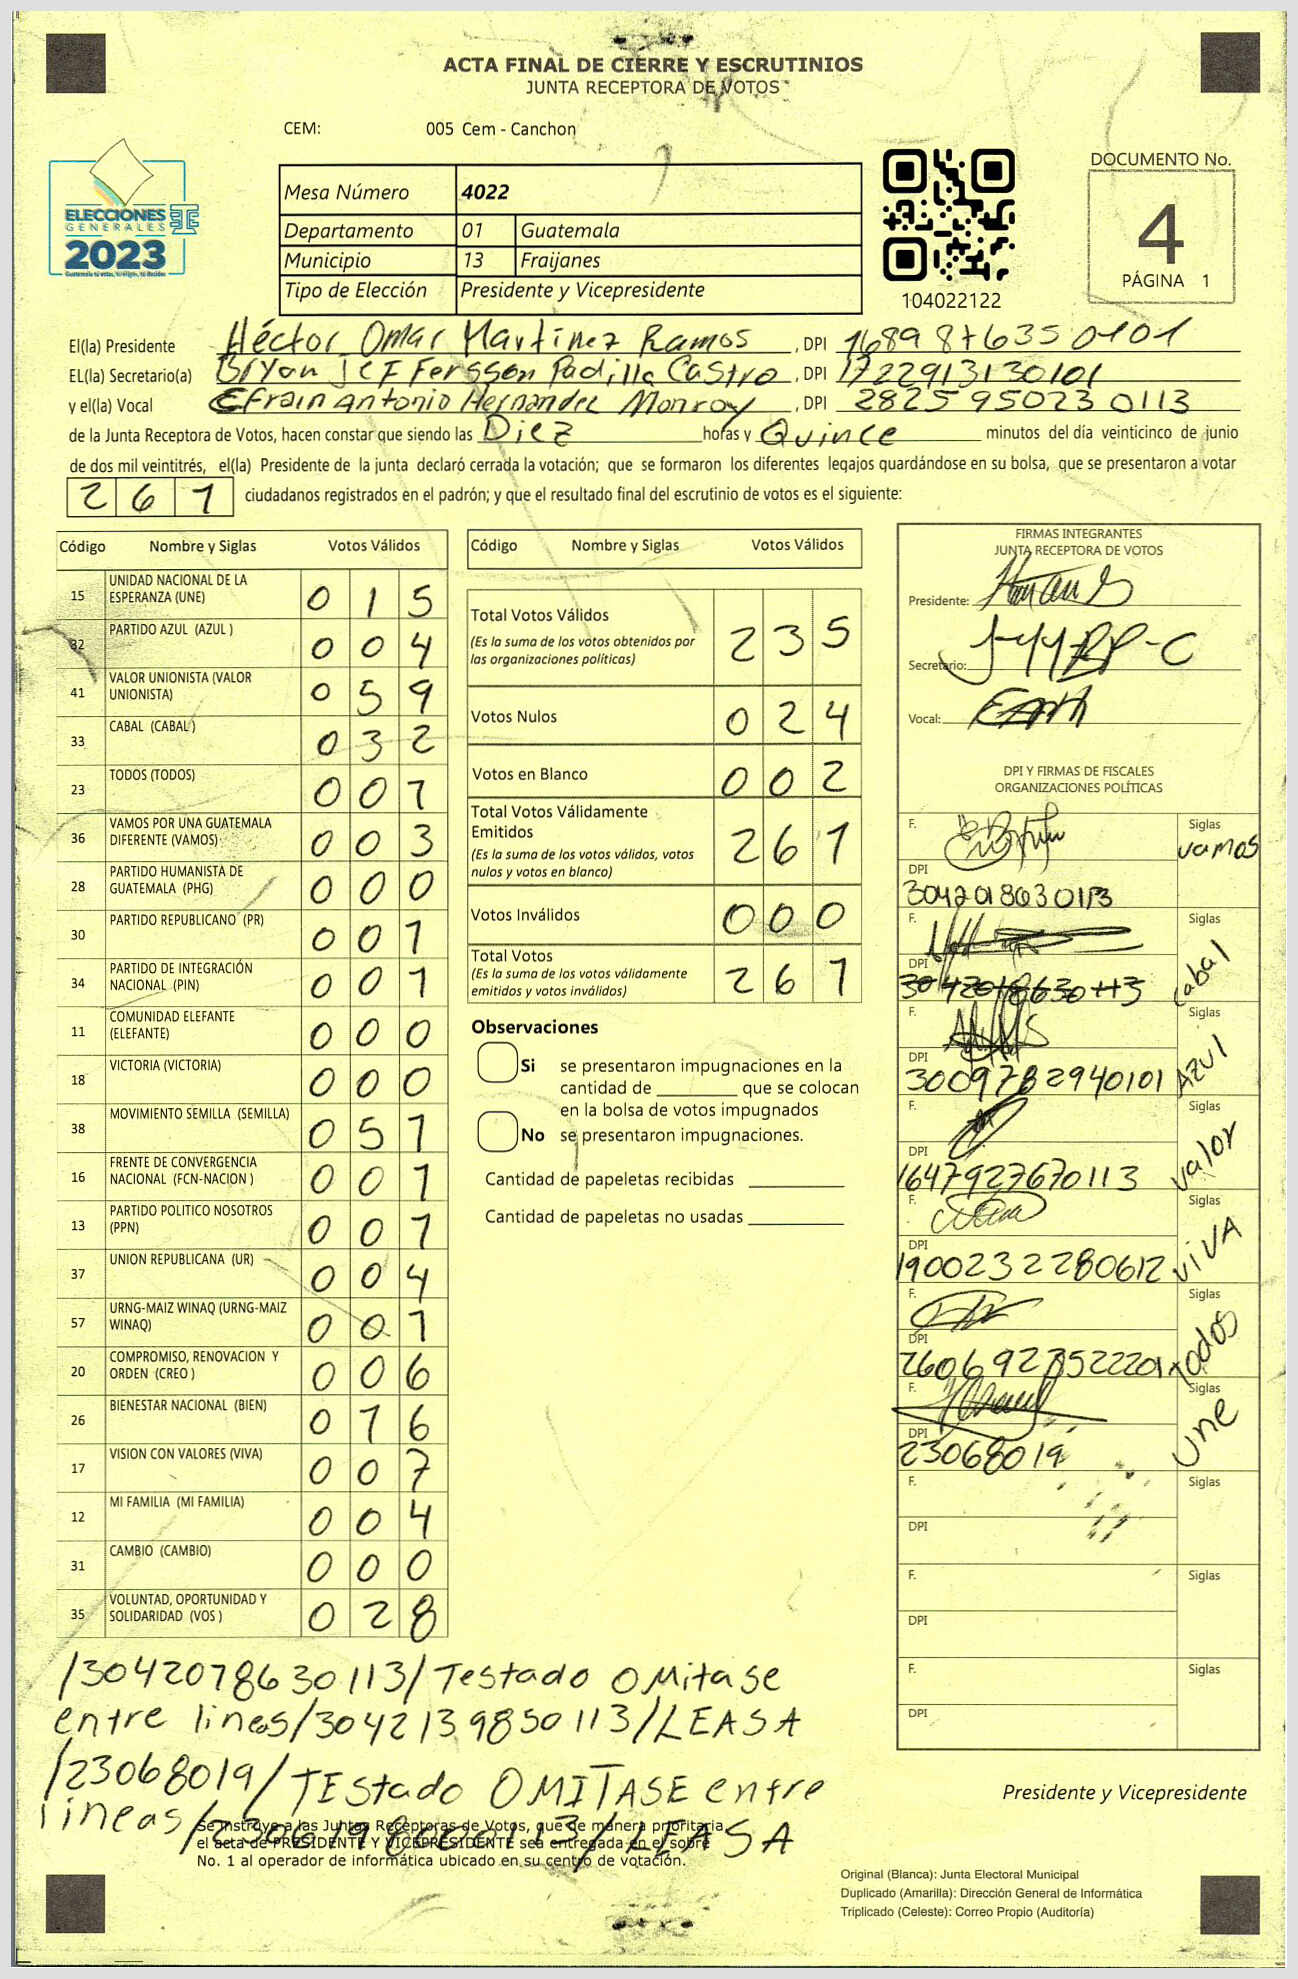 ACTA FINAL DE CIERRE Y ESCRUTINIOS
JUNTA RECEPTORA DE VOTOS
CEM: 005 Cem - Canchon
ELECCIONES
GENERALES
2023
Mesa Número 4022
Departamento 01 Guatemala
Municipio 13 Fraijanes
Tipo de Elección Presidente y Vicepresidente
104022122
DOCUMENTO No.
4
PÁGINA 1
El(la) Presidente Héctor Omar Martínez Ramos, DPI 1689876350101
EL(la) Secretario(a) Bryan Jefferson Padilla Castro, DPI 1722913130101
y el(la) Vocal Efrain Antonio Hernandez Monroy, DPI 2825950230113
de la Junta Receptora de Votos, hacen constar que siendo las Diez horas y Quince minutos del día veinticinco de junio
de dos mil veintitrés, el(la) Presidente de la junta declaró cerrada la votación; que se formaron los diferentes legajos quardándose en su bolsa, que se presentaron a votar
261 ciudadanos registrados en el padrón; y que el resultado final del escrutinio de votos es el siguiente:
Código Nombre y Siglas Votos Válidos
15 UNIDAD NACIONAL DE LA ESPERANZA (UNE) 015
32 PARTIDO AZUL (AZUL ) 004
41 VALOR UNIONISTA (VALOR UNIONISTA) 059
33 CABAL (CABAL ) 032
23 TODOS (TODOS) 001
36 VAMOS POR UNA GUATEMALA DIFERENTE (VAMOS) 003
28 PARTIDO HUMANISTA DE GUATEMALA (PHG) 000
30 PARTIDO REPUBLICANO (PR) 001
34 PARTIDO DE INTEGRACIÓN NACIONAL (PIN) 001
11 COMUNIDAD ELEFANTE (ELEFANTE) 000
18 VICTORIA (VICTORIA) 000
38 MOVIMIENTO SEMILLA (SEMILLA) 051
16 FRENTE DE CONVERGENCIA NACIONAL (FCN-NACION ) 001
13 PARTIDO POLITICO NOSOTROS (PPN) 001
37 UNION REPUBLICANA (UR) 004
57 URNG-MAIZ WINAQ (URNG-MAIZ WINAQ) 001
20 COMPROMISO, RENOVACION Y ORDEN (CREO ) 006
26 BIENESTAR NACIONAL (BIEN) 016
17 VISION CON VALORES (VIVA) 007
12 MI FAMILIA (MI FAMILIA) 004
31 CAMBIO (CAMBIO) 000
35 VOLUNTAD, OPORTUNIDAD Y SOLIDARIDAD (VOS ) 028
Código Nombre y Siglas Votos Válidos
Total Votos Válidos 235
(Es la suma de los votos obtenidos por
las organizaciones políticas)
Votos Nulos 024
Votos en Blanco 002
Total Votos Válidamente
Emitidos 261
(Es la suma de los votos válidos, votos
nulos y votos en blanco)
Votos Inválidos 000
Total Votos 261
(Es la suma de los votos válidamente
emitidos y votos inválidos)
Observaciones
Si se presentaron impugnaciones en la
cantidad de ________ que se colocan
en la bolsa de votos impugnados
No se presentaron impugnaciones.
Cantidad de papeletas recibidas
Cantidad de papeletas no usadas
FIRMAS INTEGRANTES
JUNTA RECEPTORA DE VOTOS
Presidente:
Secretario:
Vocal:
DPI Y FIRMAS DE FISCALES
ORGANIZACIONES POLÍTICAS
F. Siglas vamos
DPI 3042018630113
F. Siglas Cabal
DPI 3042018630113
F. Siglas AZUL
DPI 3009782940101
F. Siglas valor
DPI 1647927670113
F. Siglas VIVA
DPI 1900232280612
F. Siglas Todos
DPI
F. Siglas Une
DPI 23068019
F. Siglas
DPI
F. Siglas
DPI
F. Siglas
DPI
/3042078630113/Testado OMitase
entre lineas/3042139850113/LEASA
/23068019/TEstado OMITASE entre
lineas/2306198000113/LEASA
Se instruye a las Juntas Receptoras de Votos, que de manera prioritaria
el acta de PRESIDENTE Y VICEPRESIDENTE sea entregada en el sobre
No. 1 al operador de informática ubicado en su centro de votación.
Presidente y Vicepresidente
Original (Blanca): Junta Electoral Municipal
Duplicado (Amarilla): Dirección General de Informática
Triplicado (Celeste): Correo Propio (Auditoría)